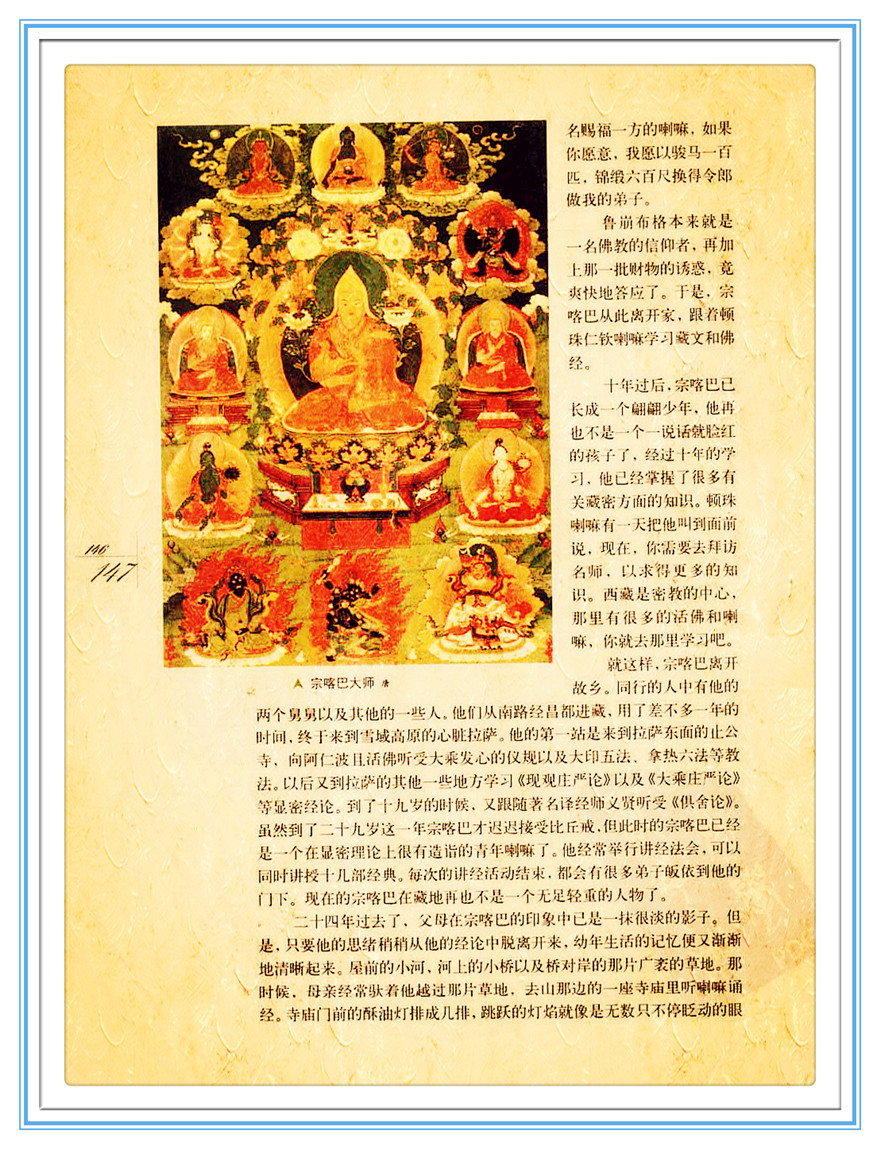 名赐福一方的喇嘛，如果
你愿意，我愿以骏马一百
匹，锦缎六百尺换得令郎
做我的弟子。
鲁崩布格本来就是
一名佛教的信仰者，再加
上那一批财物的诱惑，竟
爽快地答应了。于是，宗
喀巴从此离开家，跟着顿
珠仁钦喇嘛学习藏文和佛
经。
十年过后，宗喀巴已
长成一个翩翩少年，他再
也不是一个一说话就脸红
的孩子了，经过十年的学
习，他已经掌握了很多有
关藏密方面的知识。顿珠
喇嘛有一天把他叫到面前
说，现在，你需要去拜访
名师，以求得更多的知
识。西藏是密教的中心，
那里有很多的活佛和喇
嘛，你就去那里学习吧。
就这样，宗喀巴离开
故乡。同行的人中有他的
两个舅舅以及其他的一些人。他们从南路经昌都进藏，用了差不多一年的
时间，终于来到雪域高原的心脏拉萨。他的第一站是来到拉萨东面的止公
寺，向阿仁波且活佛听受大乘发心的仪规以及大印五法、拿热六法等教
法。以后又到拉萨的其他一些地方学习《现观庄严论》以及《大乘庄严论》
等显密经论。到了十九岁的时候，又跟随著名译经师义贤听受《俱舍论》。
虽然到了二十九岁这一年宗喀巴才迟迟接受比丘戒，但此时的宗喀巴已经
是一个在显密理论上很有造诣的青年喇嘛了。他经常举行讲经法会，可以
同时讲授十几部经典。每次的讲经活动结束，都会有很多弟子皈依到他的
门下。现在的宗喀巴在藏地再也不是一个无足轻重的人物了。
二十四年过去了，父母在宗喀巴的印象中已是一抹很淡的影子。但
是，只要他的思绪稍稍从他的经论中脱离开来，幼年生活的记忆便又渐渐
地清晰起来。屋前的小河，河上的小桥以及桥对岸的那片广袤的草地。那
时候，母亲经常驮着他越过那片草地，去山那边的一座寺庙里听喇嘛诵
经。寺庙门前的酥油灯排成几排，跳跃的灯焰就像是无数只不停眨动的眼
宗喀巴大师 唐
146
147